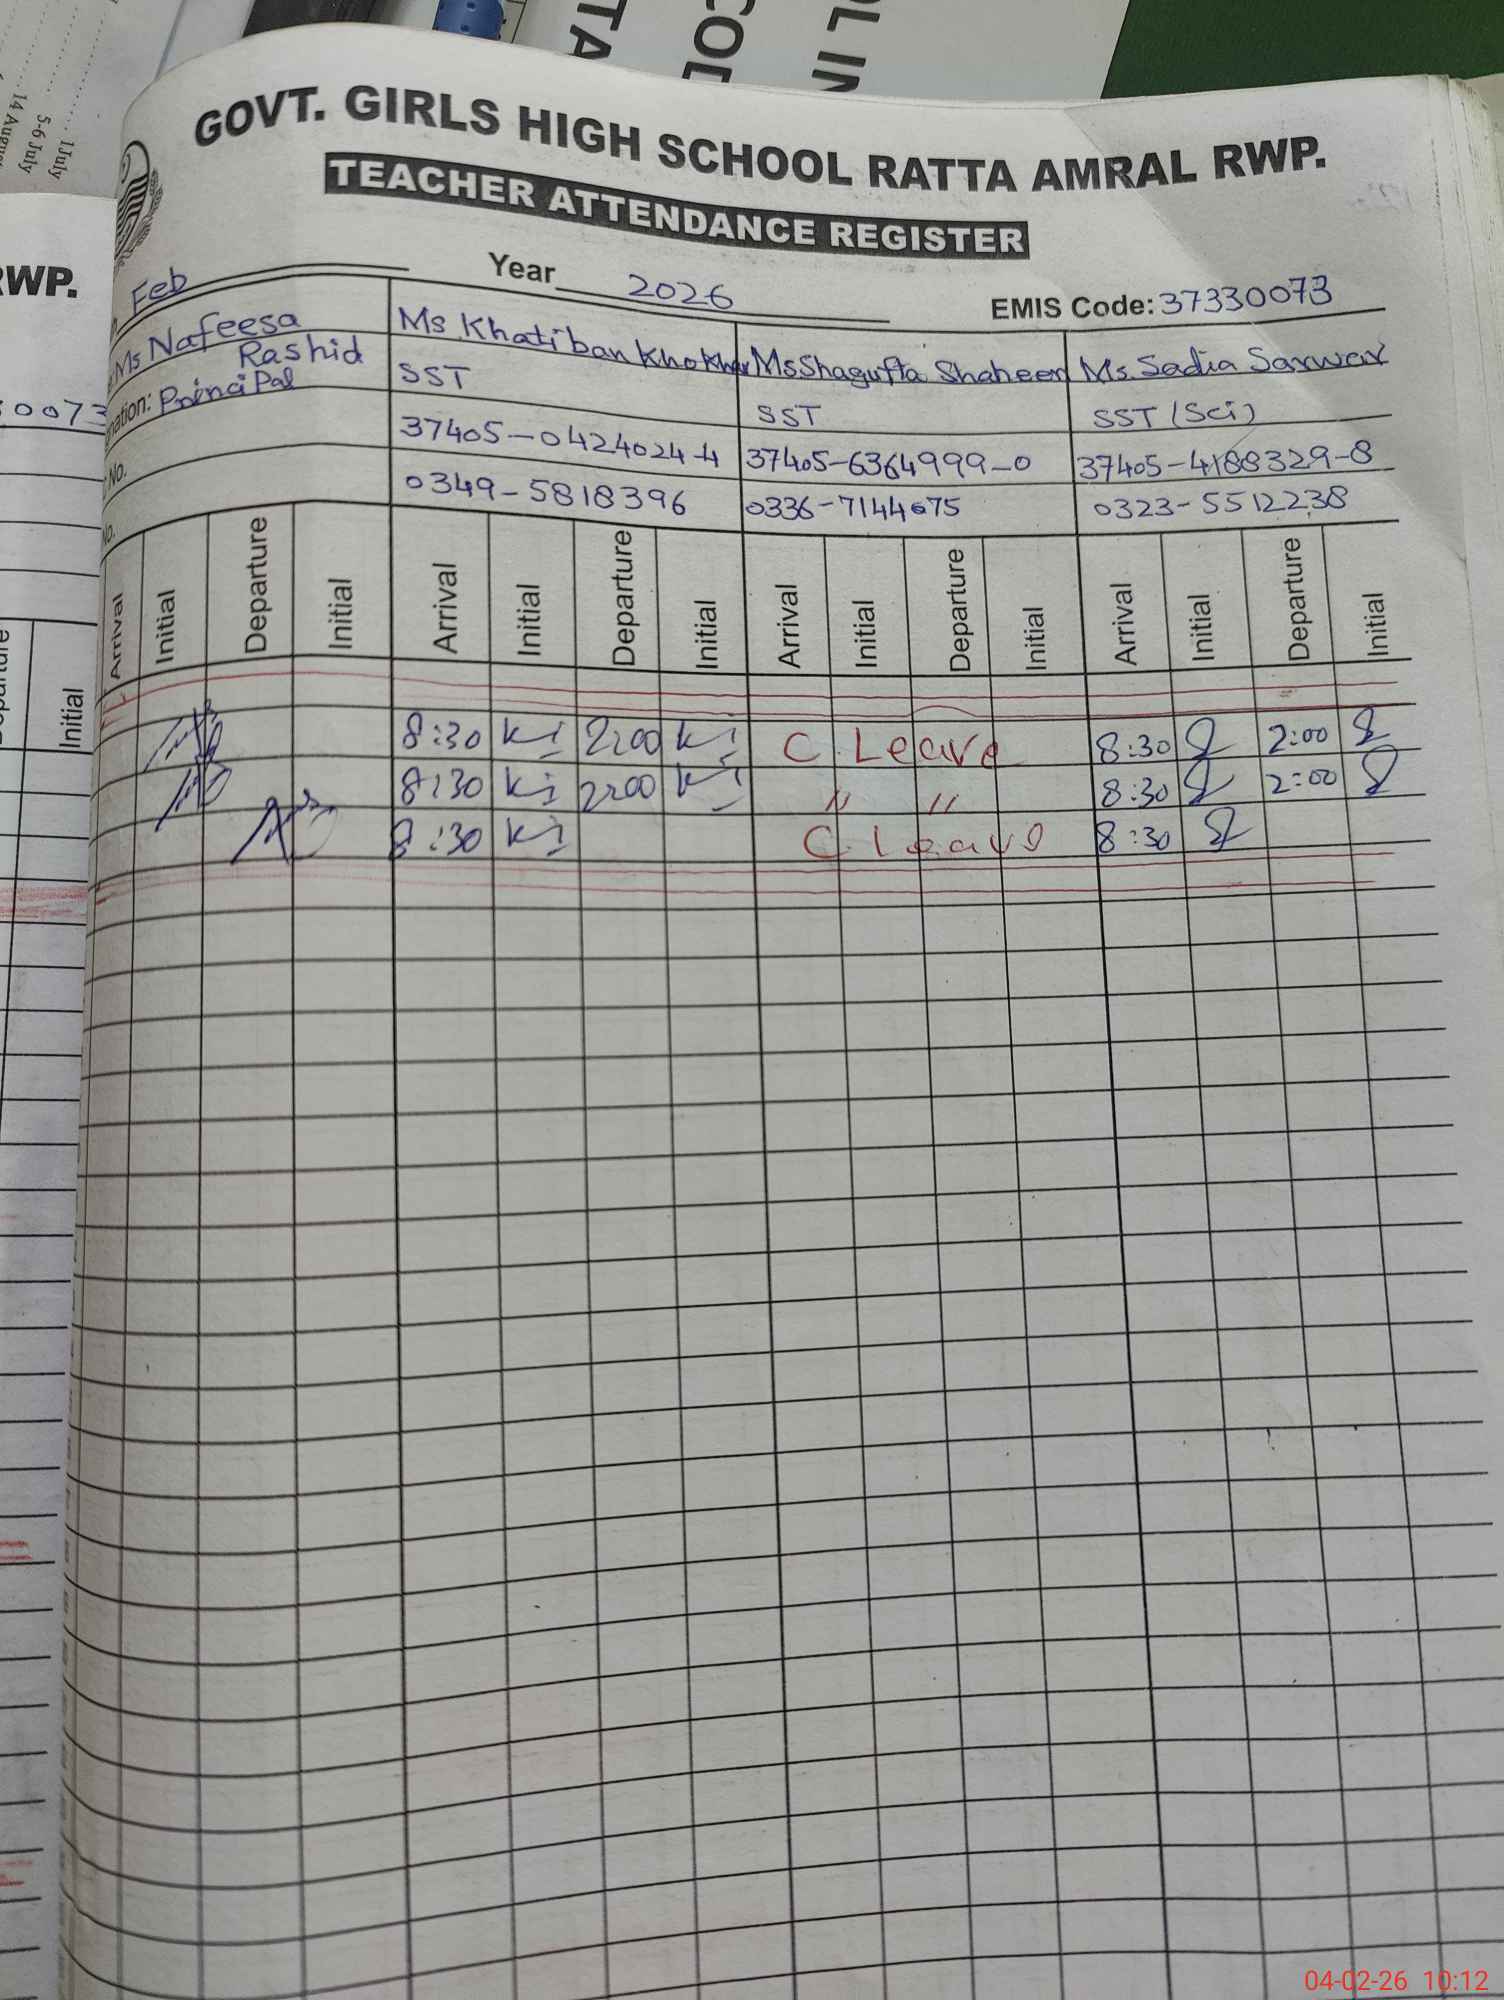 1 July
5-6 July
TA
COD
OL IN
GOVT. GIRLS HIGH SCHOOL RATTA AMRAL RWP.
TEACHER ATTENDANCE REGISTER
RWP.
Feb Year 2026 EMIS Code: 37330073
Ms Nafeesa Rashid Ms Khatiban Khokhar Ms Shagufta Shaheen Ms. Sadia Sarwar
Principal SST SST SST (Sci)
0073
No. 37405-0424024-4 37405-6364999-0 37405-4188329-8
No. 0349-5818396 0336-7144675 0323-5512238
Arrival Initial Departure Initial Arrival Initial Departure Initial Arrival Initial Departure Initial Arrival Initial Departure Initial
Initial
8:30 2:00 C. Leave 8:30 2:00
8:30 2:00 " " 8:30 2:00
8:30 C. Leave 8:30
04-02-26 10:12